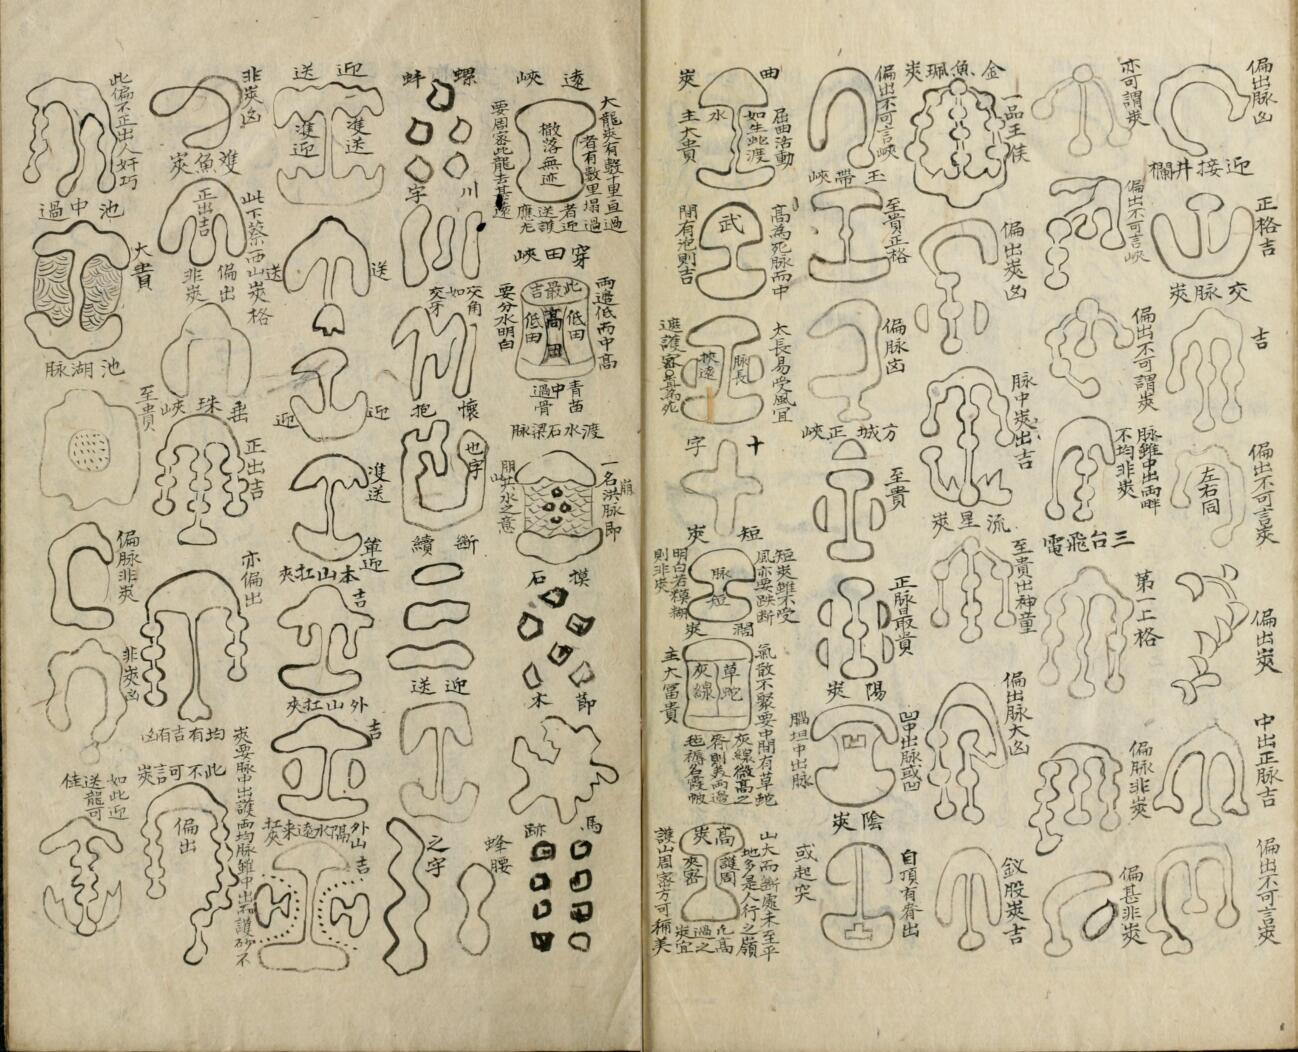 偏出脉凶
迎接井欄
正格吉
交脉炭
吉
偏出不可言炭
左右同
偏出炭
中出正脉吉
偏出不可言炭
亦可謂炭
偏出不可言峽
偏出不可謂炭
脉雖中出両畔
不均非炭
三台飛電
第一上格
偏脉非炭
偏甚非炭
金魚珮炭
一品王侯
偏出炭凶
脉中炭出吉
流星炭
至貴出神童
偏出脉大凶
釵股炭吉
偏出不可言峽
玉帶峽
至貴正格
偏脉凶
方城正峽
至貴
正脉最貴
陽炭
凹中出脉或凹
腦坦中出脉
陰炭
自頂有脊出
或起突
曲炭
水
屈曲活動
如生此渡
主大貴
武
高為死脉而中
間有泡則吉
脉長
太長易受風宜
十字
短炭
脉短
短炭雖不受
風亦要跌断
明白若糢糊
則非炭
濶炭
草蛇
灰線
氣散不聚要中間有草蛇
灰線微高之
主大冨貴
高炭
護周
夾密
山大而断處未至平
地多是人行之嶺
凡高
過之
炭宜
護山周密方可称美
遠峽
大龍炭有數十里亘過
者有數里塌過
撒落無迹
者近
送護
要周密此龍去甚遠
穿田峽
両邉低而中高
此最吉
低田
高田
低田
要分水明白
青苗
中過骨
渡水石梁脉
一名洪脉即
崩洪水之意
摸石
節木
馬跡
螺蚌
川字
交角
如交牙
懷抱
也字
断續
迎送
之字
蜂腰
迎送
雙送
雙迎
送
送
迎
迎
雙送
單迎
本山扛夾
吉
外山扛夾
吉
外山隔水遠来扛夾
吉
非炭凶
雙魚炭
正出吉
此下蔡西山炭格
偏出
非炭
垂珠峽
正出吉
亦偏出
均有吉有凶
炭要脉中出護両均脉雖中出而護砂不
此不可言炭
偏出
此偏不正出人奸巧
池中過
大貴
池湖脉
至貴
偏脉非炭
非炭凶
如此迎
送龍可
佳